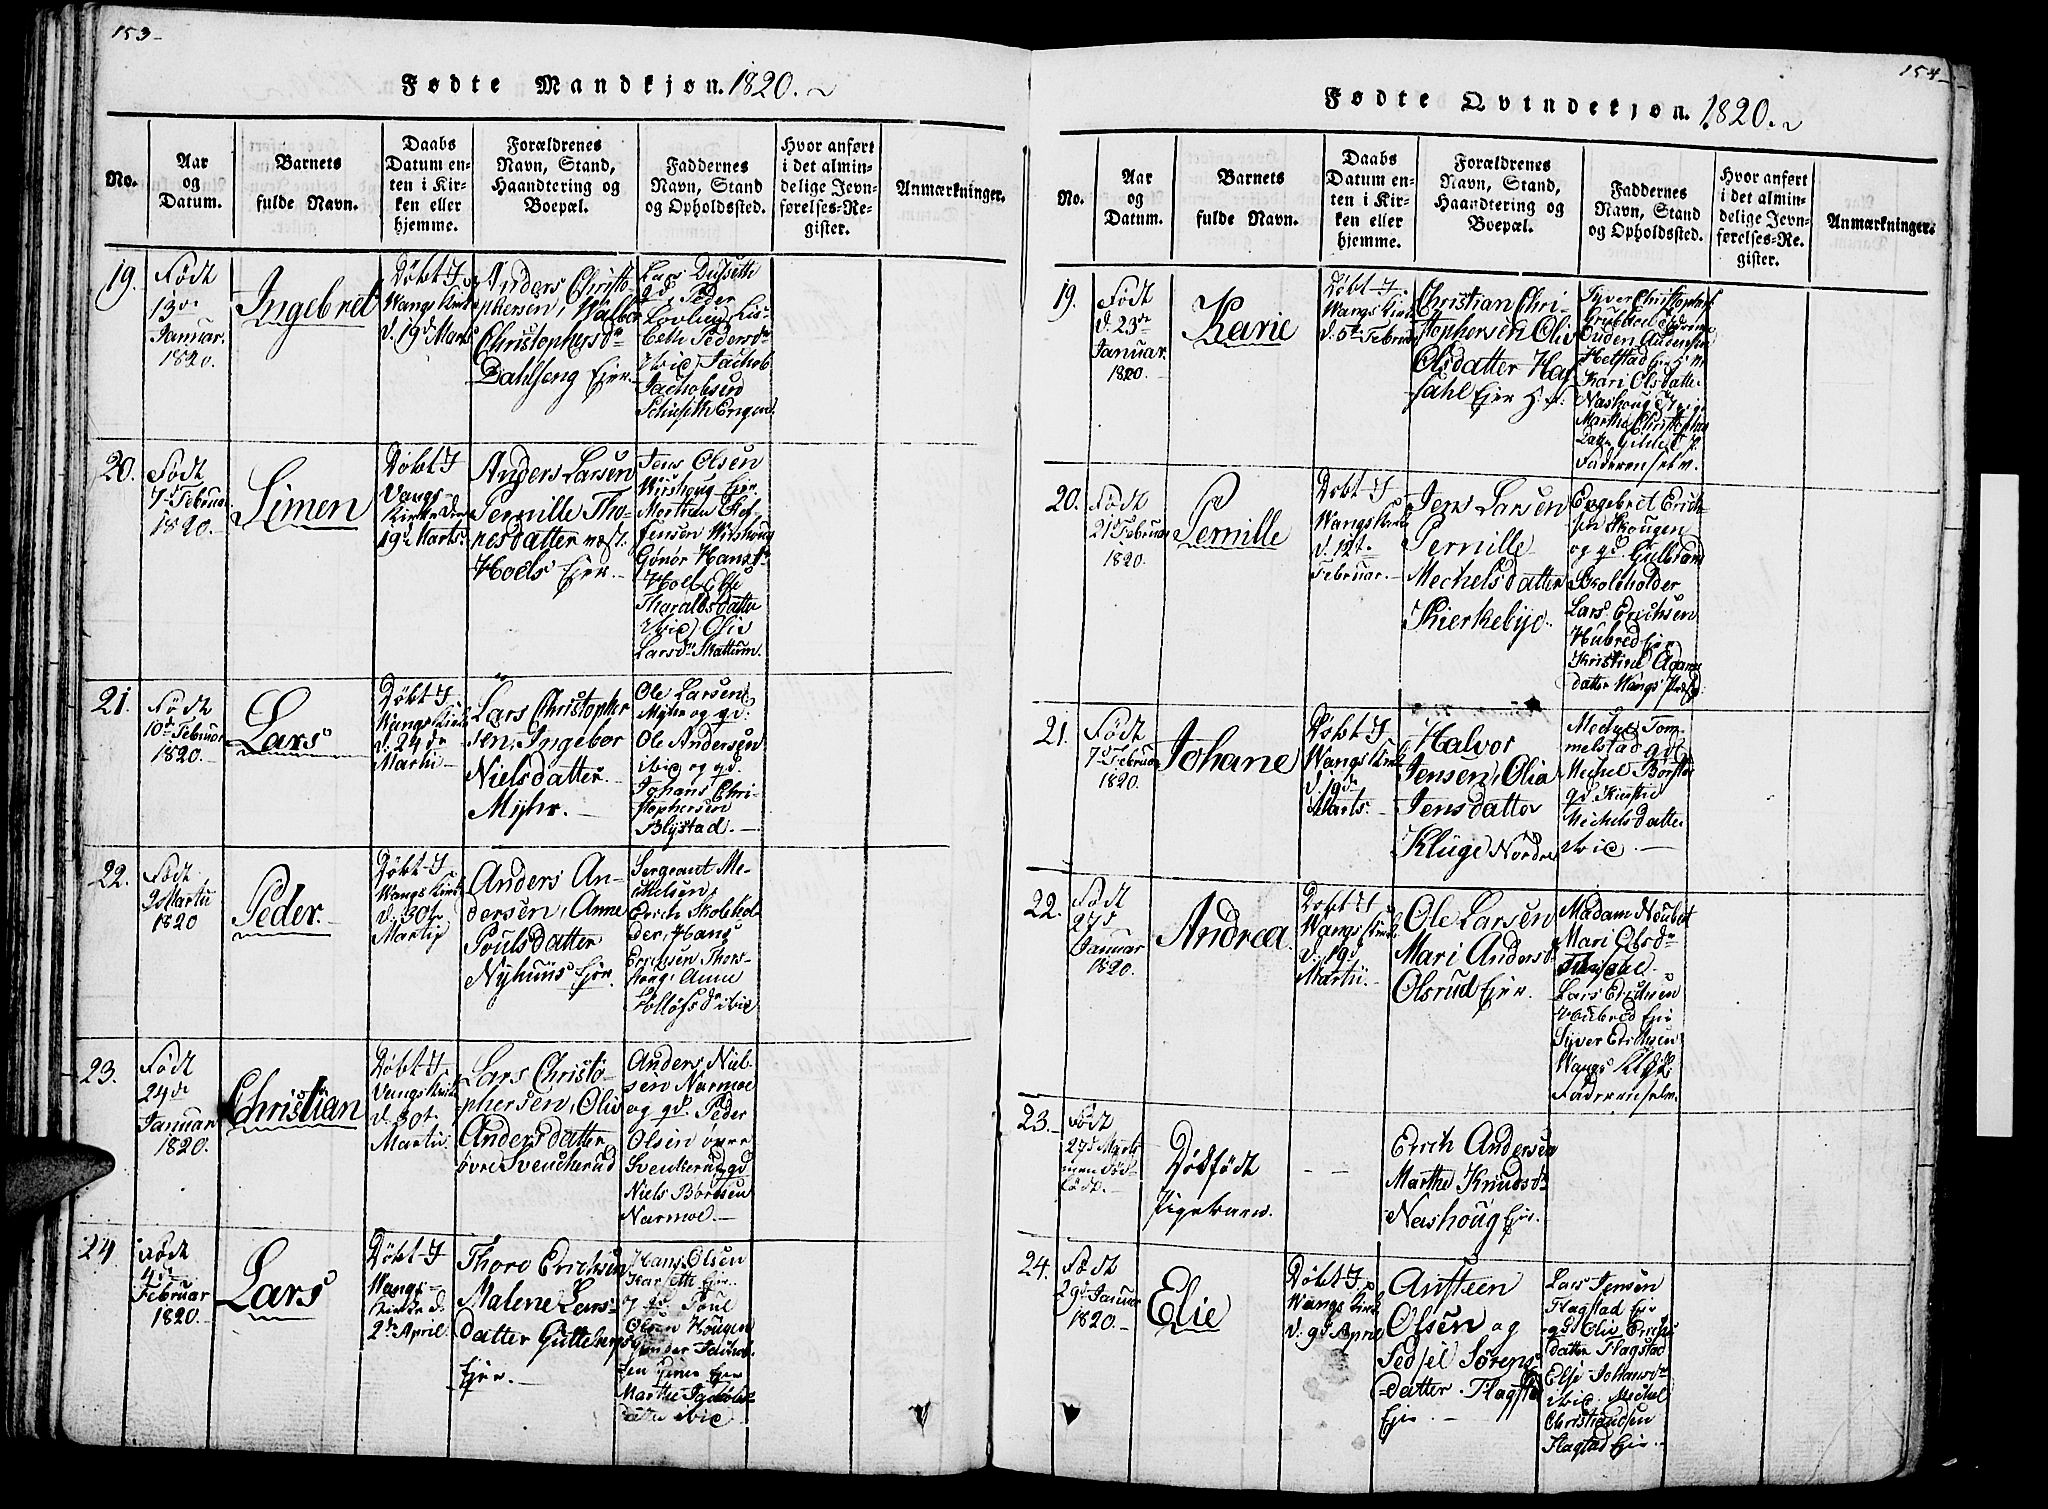 153-
Fødte Mandkjøn. 1820.
No.
Aar
og
Datum.
Barnets
fulde Navn.
Daabs
Datum en-
ten i Kir-
ken eller
hjemme.
Forældrenes
Navn, Stand,
Haandtering og
Boepæl.
Faddernes
Navn, Stand
og Opholdssted.
Hvor anført
i det almin-
delige Jevn-
førelses-Re-
gister.
Anmærkninger.
19.
Født
13de
Januar.
1820.
Ingebret
Døbt I
Wangs Kirke
d. 19d Marts
Anders Christo-
phersen, Walbor
Christophersdr
Dahlseng Ejer.
Lars Dusseth
gd. Peder
Lis-
beth Pedersdr
ibid Jachob
Jachobsen
Engen
20.
Født
7d Februar
1820.
Simen
Døbt I
Vangs-
Kirke den
19d Marts
Anders Larsen
Pernille Tho-
resdatter
Hoels Ejer.
Jens Olsen
Wirshoug Ejer
Morthen
Jensen Wirshoug
Gunor Hansdr
Hoel
Tharaldsdatter
ibid Oliv
Larsdr Mattum.
21.
Født
10d Februar
1820.
Lars
Døbt I
Wangs Kirke
d. 24de
Martii
Lars Christopher
sen, Ingebor
Nielsdatter
Myhr.
Ole Larsen
Myhr og gd.
Ole Andersen
ibid og gd.
Johans Chri-
stophersen
Blystad.
22.
Født
9 Martii
1820
Peder.
Døbt I
Wangs Kirke
d. 30t
Martii
Anders An-
dersen, Anne
Poulsdatter
Nyhuus Ejer.
Sergeant Me-
chelsen,
Erich Skolehol-
der, Hans
Erichsen Thors-
houg, Anne
ibid
23.
Født
24de
Januar
1820.
Christian
Døbt I
Vangs Kirke
d. 30t
Martii
Lars Christo-
phersen, Oliv
Andersdatter
øvre Svenkerud
Anders Niel-
sen Narmoe
og gd. Peder
Olsen øvre
Svenkerud gd
Niels Børresen
Narmoe.
24
Født
4de
Februar
1820.
Lars
Døbt I
Wangs-
Kirke d.
2de April
Thore Erichsen
Malene Lars-
datter Guttelsrus
Ejer.
Hans Olsen
Karseth Ejer
og gd Poul
Olsen Hougen
Ejer
Marthe Jachobs-
datter ibid
154-
Fødte Qvindekjøn. 1820.
No.
Aar
og
Datum.
Barnets
fulde Navn.
Daabs
Datum en-
ten i Kir-
ken eller
hjemme.
Forældrenes
Navn, Stand,
Haandtering og
Boepæl.
Faddernes
Navn, Stand
og Opholdssted.
Hvor anført
i det almin-
delige Jevn-
førelses-Re-
gister.
Anmærkninger.
19.
Født
d. 23de
Januar.
1820.
Karie
Døbt I
Wangs Kirke
d. 5te Februar
Christian Chri-
stophersen Oliv
Olsdatter Haf
sahl Ejer
Syver Christophers
Kari Olsdatter
Nashoug
Marthe Christophers
datter
Faderen selv.
20.
Født
21d Februar
1820.
Pernille
Døbt I
Wangs Kirke
d. 12t
Februar.
Jens Larsen
Pernille
Mechelsdatter
Kierkebye.
Engebret Erich-
sen Skougen
og gd. Gulbran
Skoleholder
Lars Erichsen
Hubred Ejer
Kristine Adams
datter Wangs
21.
Født
7d Februar
1820.
Johane
Døbt I
Wangs Kirke
d. 19d
Marts.
Halvor
Jensen, Olia
Jensdatter
Kluge Nordre
Mechel Tom-
melstad gd
Mechel Borstad
gd Kierstie
Mechelsdatter
ibid.
22.
Født
27d
Januar
1820.
Andrea.
Døbt I
Wangs Kirke
d. 19d
Martii.
Ole Larsen
Mari Andersd
Olsrud Ejer.
Madam Neubert
Mari Olsdr
Lars Erichsen
Houbred Ejer
Syver Erichsen
Wangs
Faderen selv.
23.
Født
27d Marts
men død-
født.
Dødfødt
Pigebarn.
- -
Erich Andersen
Marthe Knudsdr
Nashoug Ejer.
24.
Født
29d Januar
1820.
Elie
Døbt I
Wangs Kirke
d. 9d April
Ansteen
Olsen og
Sedsel Sørens-
datter Flagsta
Ejer.
Lars Jensen
Flagstad Ejer
gd Oliv Erichs-
datter Flagstad
Elsi Johansdr
ibid, Mechel
Christiandsen
Flagstad Ejer.